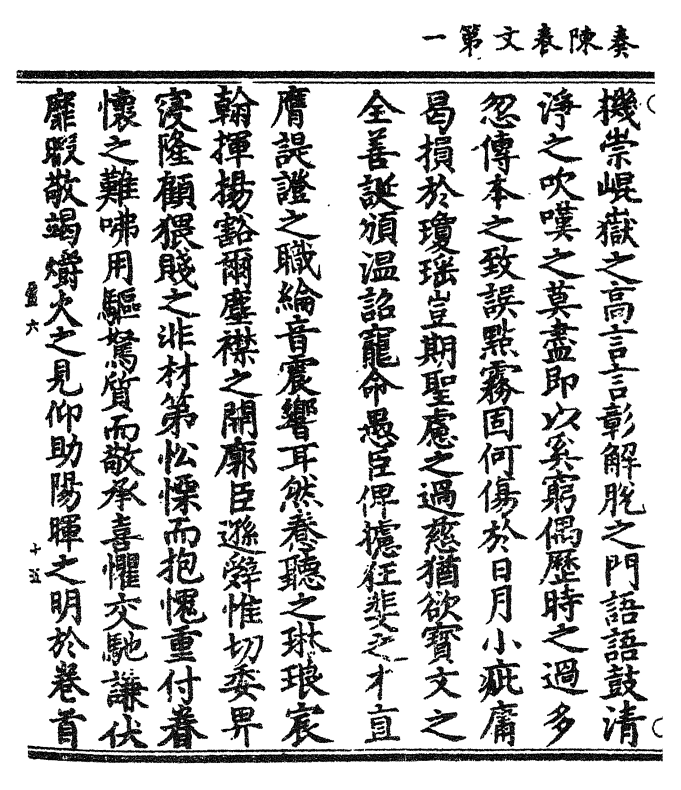 奏陳表文第一
機崇崐嶽之高言言彰解脫之門語語鼓清
淨之吹嘆之莫盡即以奚窮偶歷時之過多
忽傳本之致誤點霧固何傷於日月小疵庸
曷損於瓊瑤豈期聖慮之過慈猶欲寶文之
全善誕頒温詔寵命愚臣俾攄狂斐之才亘
膺諟證之職綸音震響耳然養聽之琳琅宸
翰揮揚豁爾塵襟之開廓臣遜辤惟切委畀
寖隆顧猥賤之非材第忪慄而抱愧重付眷
懷之難咈用驅駑質而敬承喜懼交馳謙伏
靡暇敬竭爝火之見仰助陽暉之明於卷首
六
十五